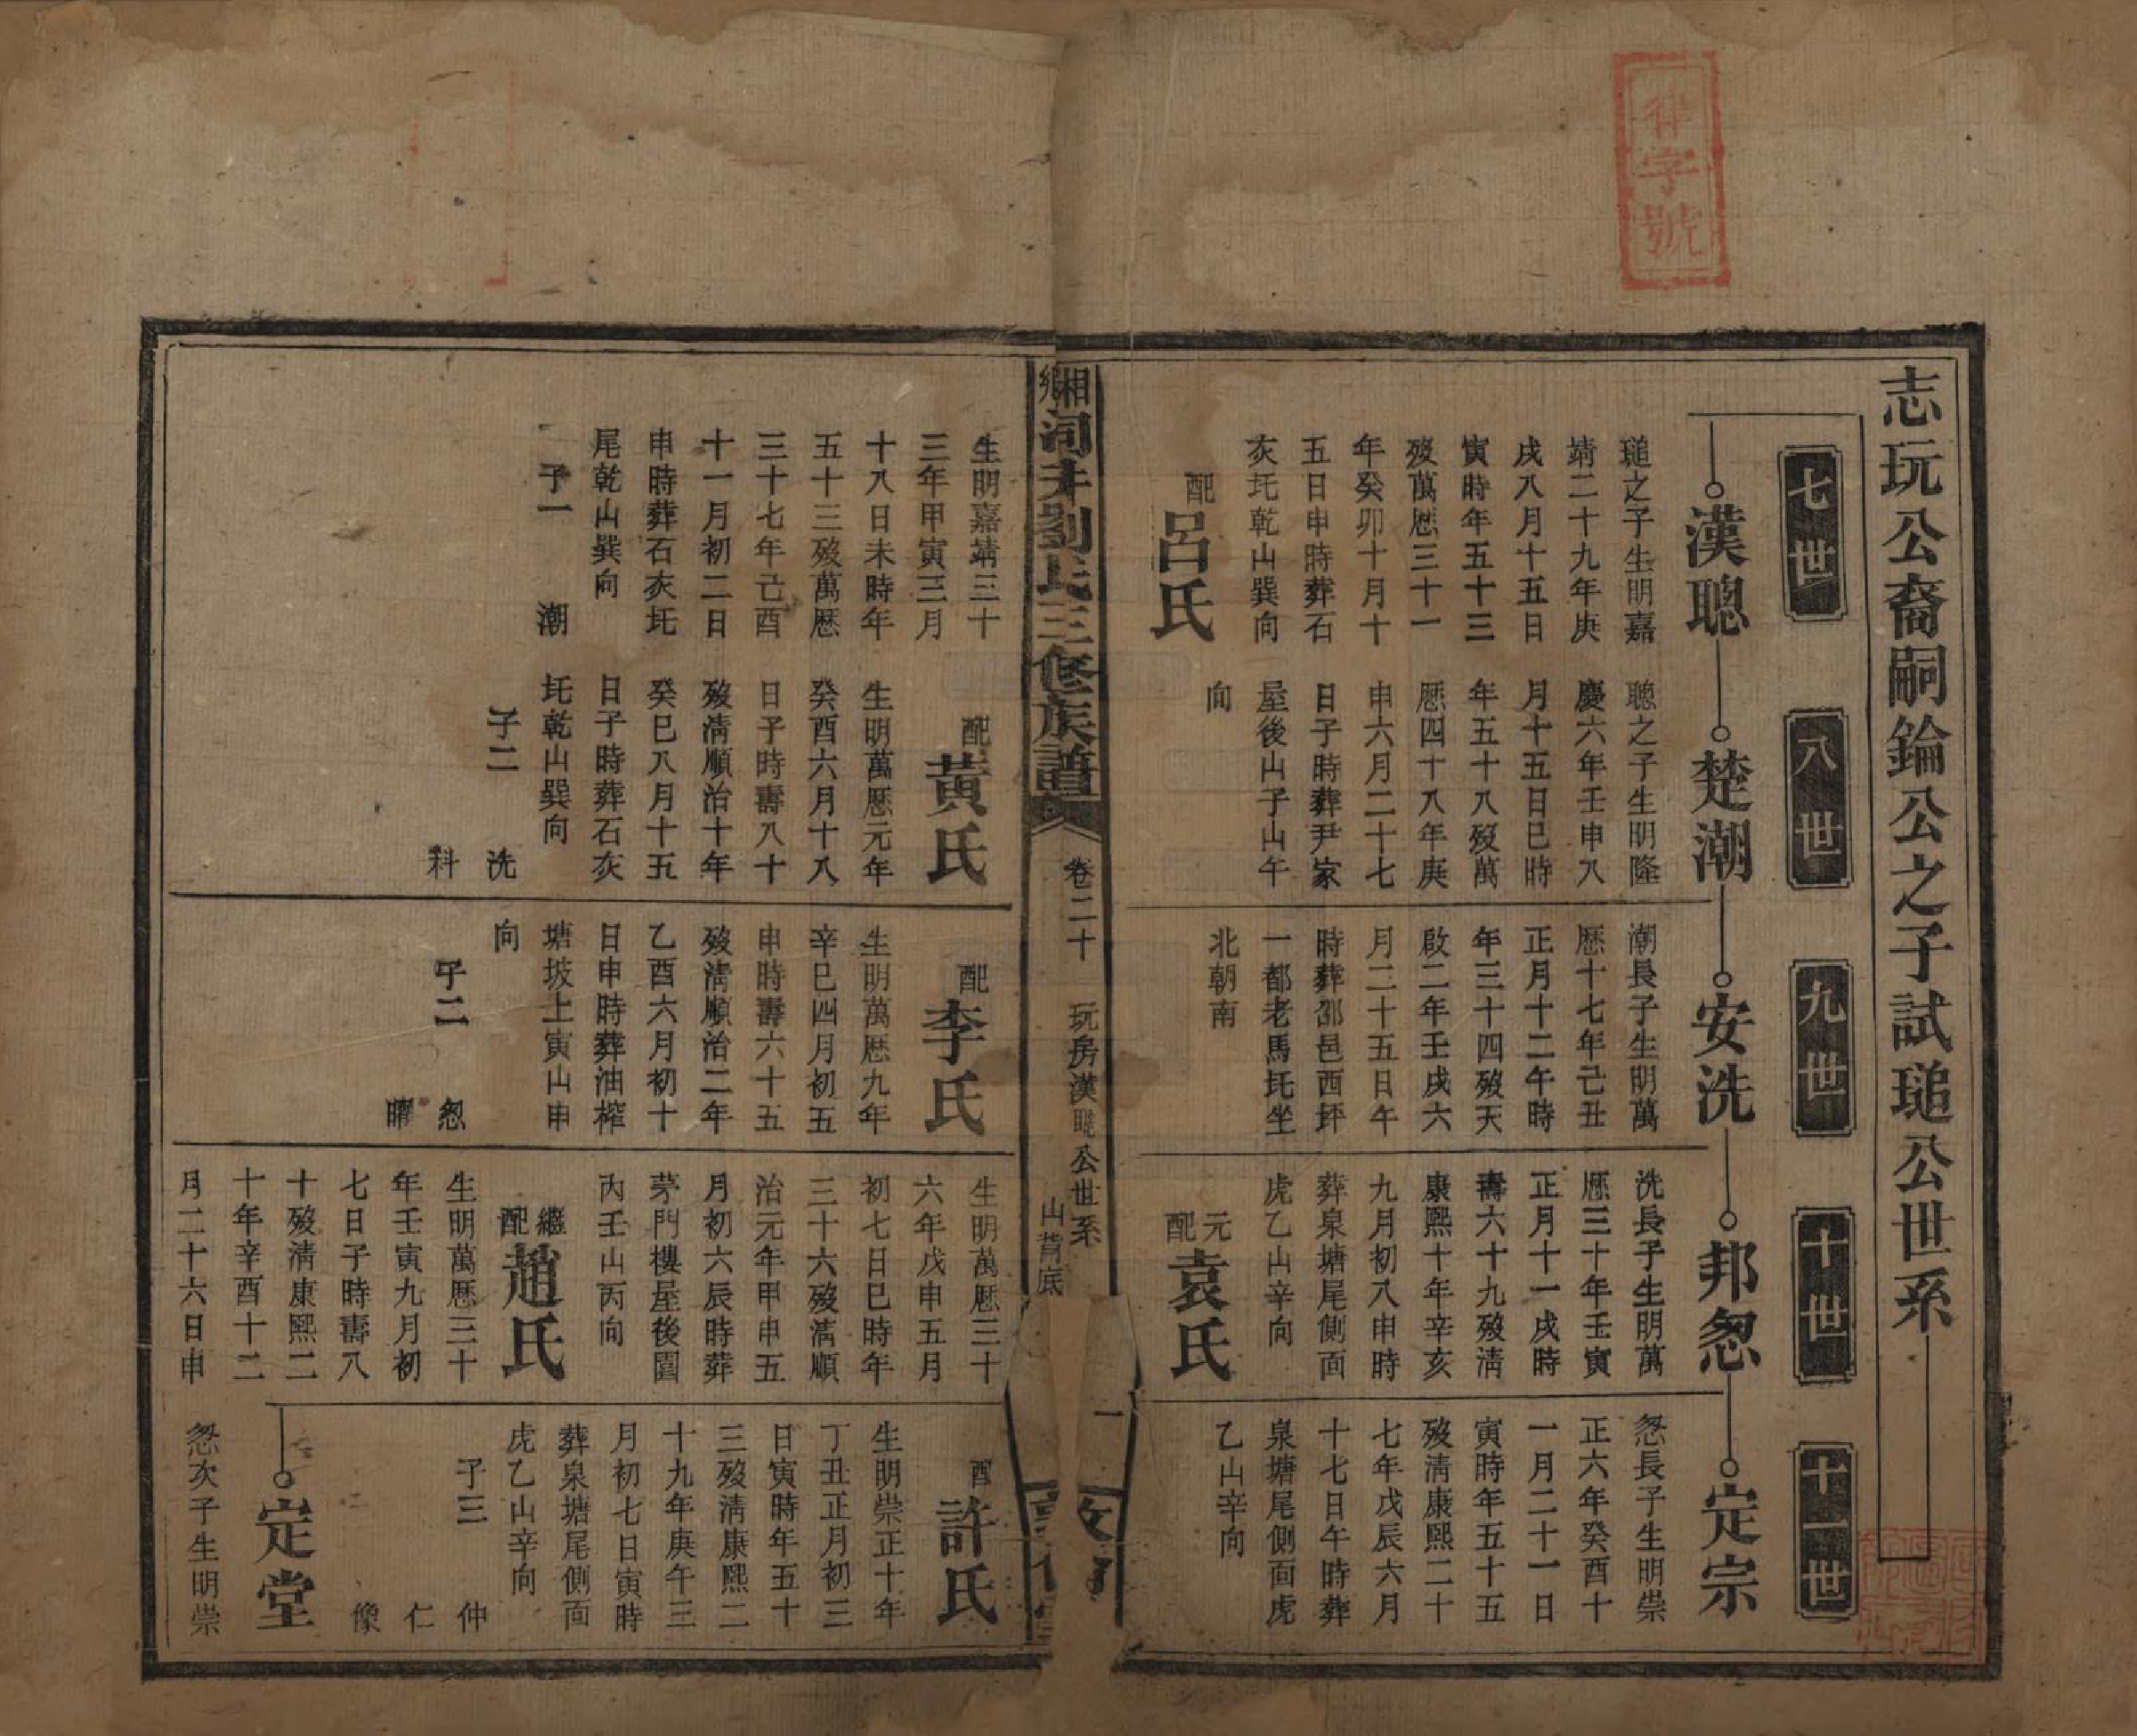 字號
志玩公裔嗣錀公之子試瑝公世系
七世
八世
九世
十世
十一世
漢聰
楚潮
安洗
邦怱
定宗
瑝之子生明嘉
靖二十九年庚
戌八月十五日
寅時年五十三
歿萬厯三十一
年癸卯十月十
五日申時葬石
灰圫乾山巽向
配
呂氏
聰之子生明隆
慶六年壬申八
月十五日巳時
年五十八歿萬
厯四十八年庚
申六月二十七
日子時葬尹家
屋後山子山午
向
潮長子生明萬
厯十七年己丑
正月十二午時
年三十四歿天
啟二年壬戌六
月二十五日午
時葬邵邑酉坪
一都老馬圫坐
北朝南
洗長子生明萬
厯三十年壬寅
正月十一戌時
壽六十九歿淸
康熙十年辛亥
九月初八申時
葬泉塘尾側面
虎乙山辛向
元配
袁氏
怱長子生明崇
正六年癸酉十
一月二十一日
寅時年五十五
歿淸康熙二十
七年戊辰六月
十七日午時葬
泉塘尾側面虎
乙山辛向
湘鄉
洞井劉氏三修族譜
卷二十
玩房漢聰公世系
山背底
一
生明嘉靖三十
三年甲寅三月
十八日未時年
五十三歿萬厯
三十七年己酉
十一月初二日
申時葬石灰圫
尾乾山巽向
子一
潮
配
黃氏
生明萬厯元年
癸酉六月十八
日子時壽八十
歿淸順治十年
癸巳八月十五
日子時葬石灰
圫乾山巽向
子二
洗
科
配
李氏
生明萬厯九年
辛巳四月初五
申時壽六十五
歿淸順治二年
乙酉六月初十
日申時葬油榨
塘坡上寅山申
向
子二
怱
曜
生明萬厯三十
六年戊申五月
初七日巳時年
三十六歿淸順
治元年甲申五
月初六辰時葬
茅門樓屋後園
內壬山丙向
繼配
趙氏
生明萬厯三十
年壬寅九月初
七日子時壽八
十歿淸康熙二
十年辛酉十二
月二十六日申
配
許氏
生明崇正十年
丁丑正月初三
日寅時年五十
三歿淸康熙二
十九年庚午三
月初七日寅時
葬泉塘尾側面
虎乙山辛向
子三
仲
仁
像
定堂
怱次子生明崇